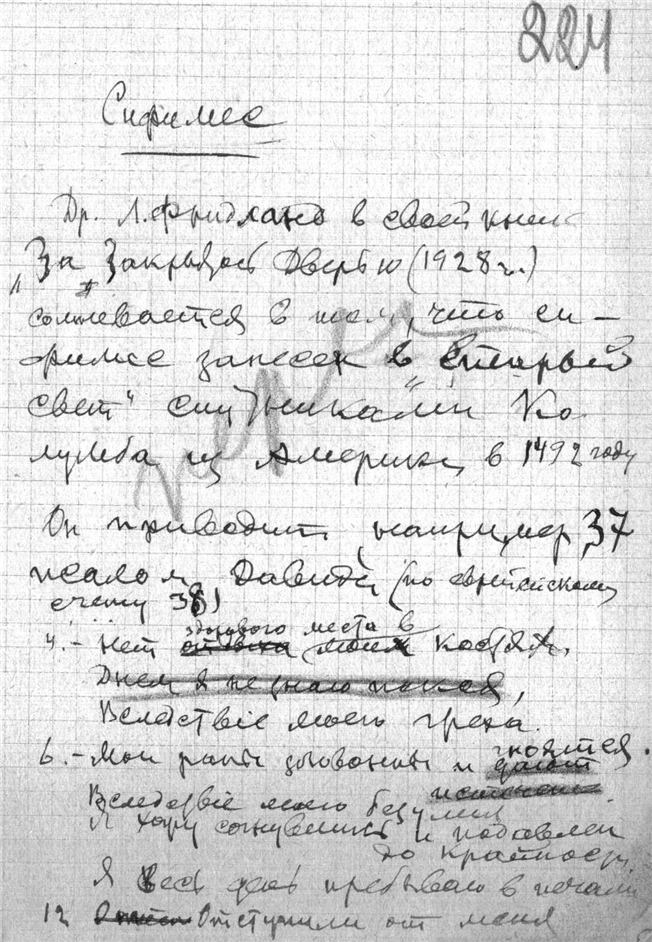 224
Сифилис
Др. Л. Фридланд в своей книге
"За Закрытой Дверью (1928 г.)
сомневается в том, что си-
филис занесен в "Старый
свет" спутниками Ко-
лумба из Америки в 1492 году
Он приводит, например, 37
псалом Давида (по еврейскому
счету 38)
4. - Нет здорового места в моих костях,
Днем я не знаю покоя,
Вследствіе моего греха.
6. - Мои раны зловонны и гноятся.
Вследствіе моего безумия
Я хожу согнувшись и подавлен
до крайности,
Я весь день пребываю в печали
12 Отступили от меня